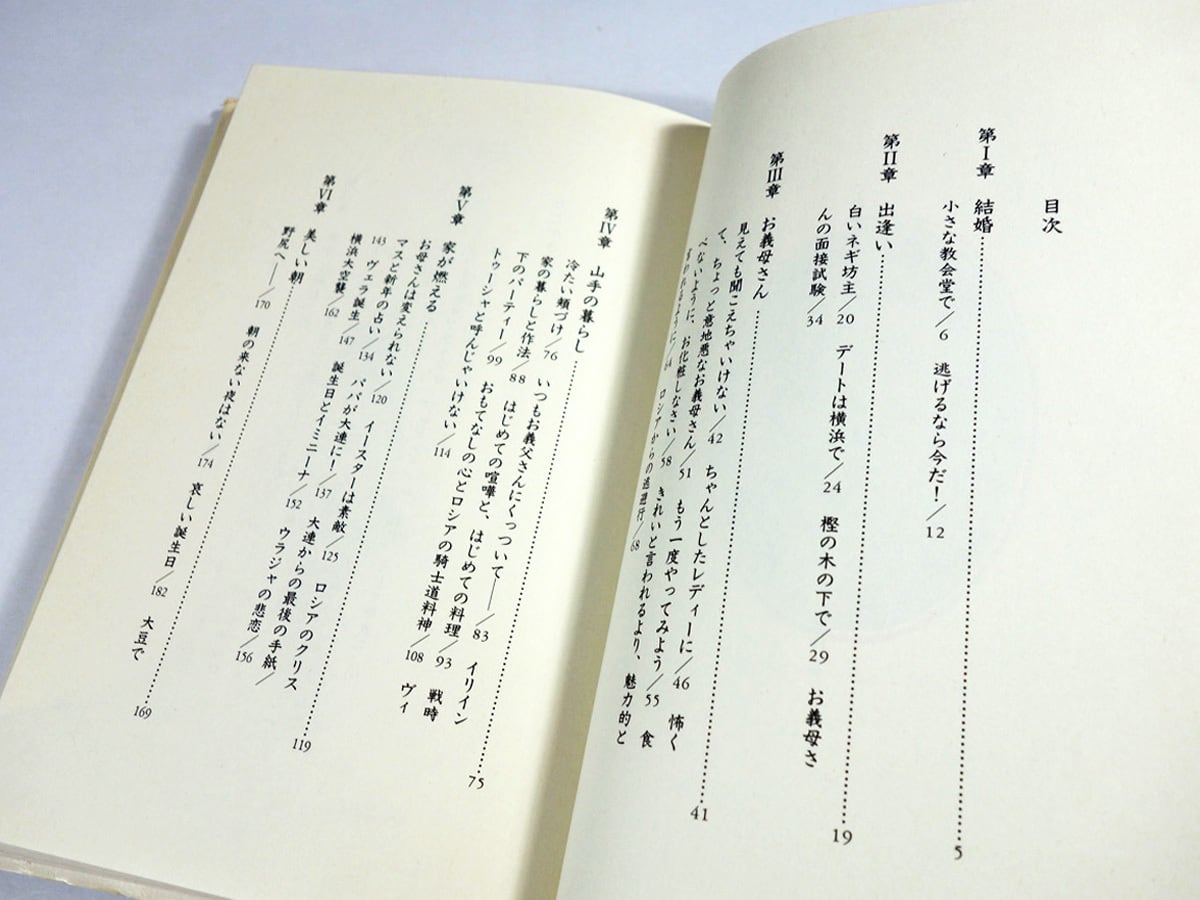 目次
第Ⅰ章 結婚……5
小さな教会堂で/6 逃げるなら今だ!/12
第Ⅱ章 出逢い……19
白いネギ坊主/20 デートは横浜で/24 樫の木の下で/29 お義母さ
んの面接試験/34
第Ⅲ章 お義母さん……41
見えても聞こえちゃいけない/42 ちゃんとしたレディーに/46 怖く
て、ちょっと意地悪なお義母さん/51 もう一度やってみよう/55 食
べないように、お化粧しなさい/58 きれいと言われるより、魅力的と
言われるように/64 ロシアからの逃避行/68
第Ⅳ章 山手の暮らし……75
冷たい頬づけ/76 いつもお義父さんにくっついて——/83 イリイン
家の暮らしと作法/88 はじめての喧嘩と、はじめての料理/93 戦時
下のパーティー/99 おもてなしの心とロシアの騎士道料神/108 ヴィ
トゥーシャと呼んじゃいけない/114
第Ⅴ章 家が燃える……119
お母さんは変えられない/120 イースターは素敵/125 ロシアのクリス
マスと新年の占い/134 パパが大連に!/137 大連からの最後の手紙/
143 ヴェラ誕生/147 誕生日とイミニーナ/152 ウラジャの悲恋/156
横浜大空襲/162
第Ⅵ章 美しい朝……169
野尻へ——/170 朝の来ない夜はない/174 哀しい誕生日/182 大豆で